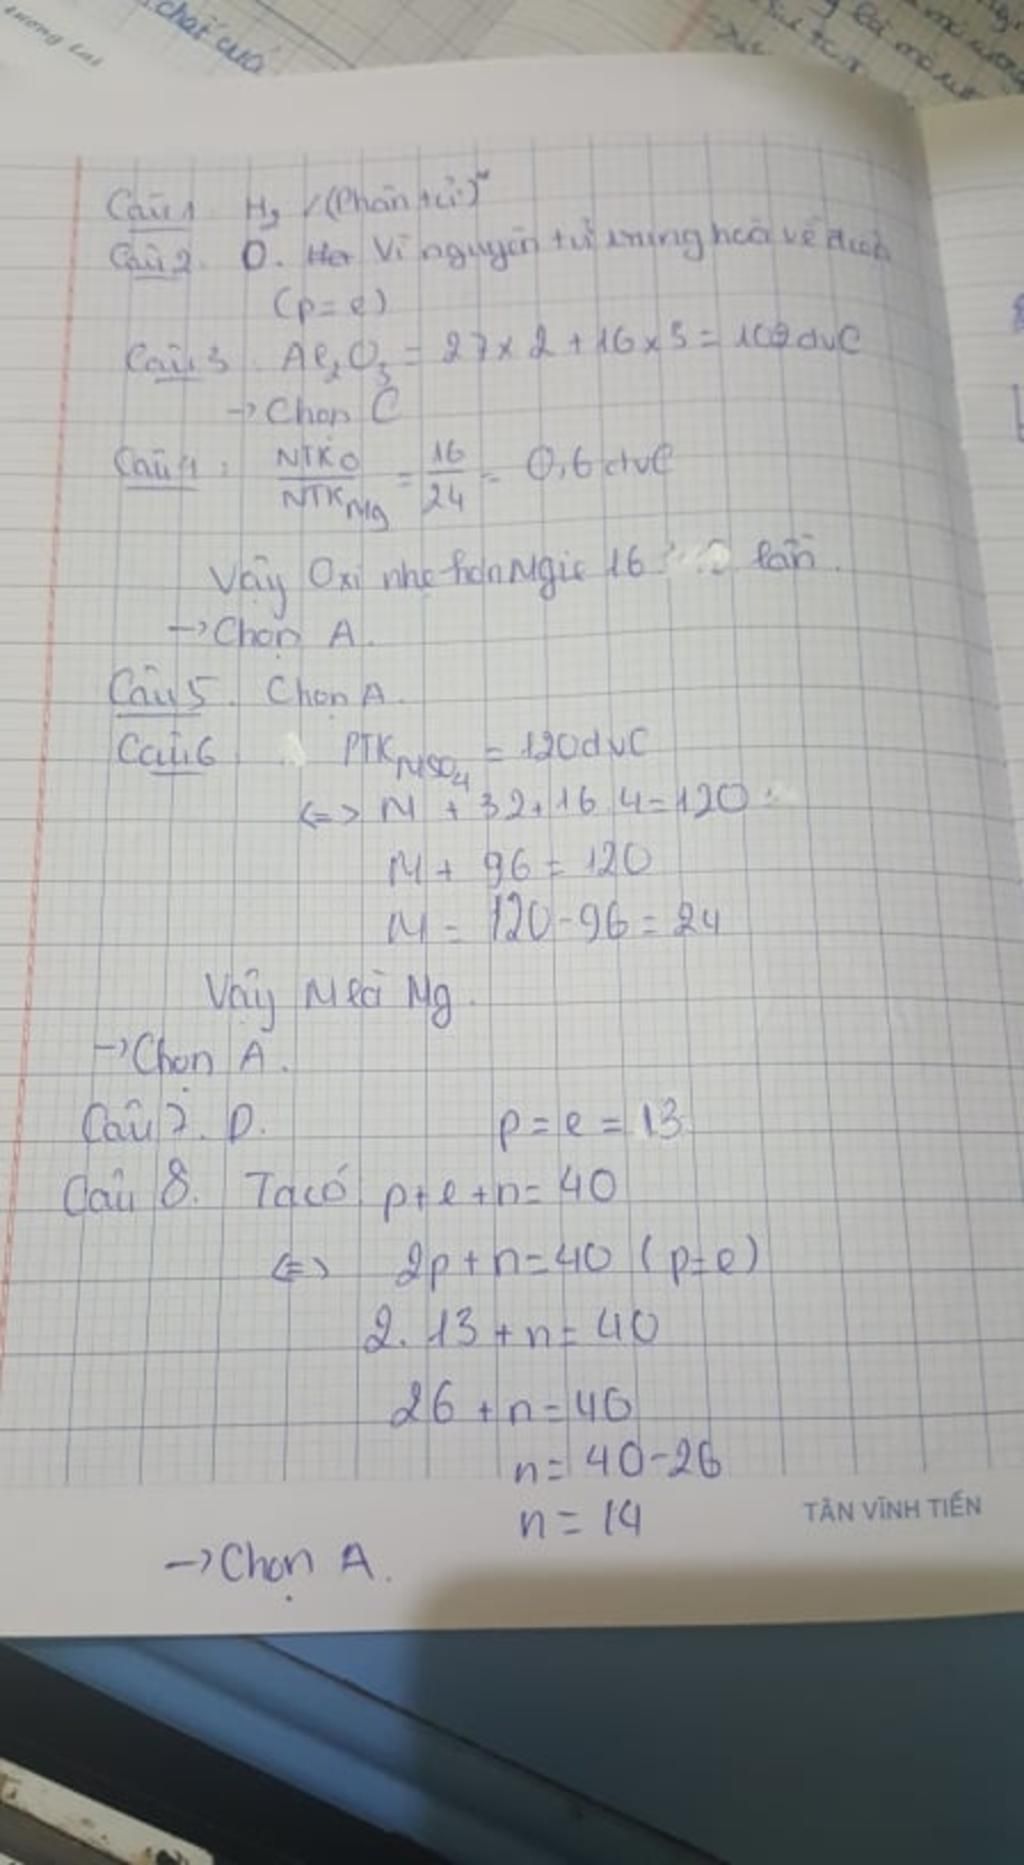 tương lai
chất cuả
Câu 1 H₂ / (Phân tử)
Câu 2. D. Vì nguyên tử trung hoà về điện
(p = e)
Câu 3. Al₂O₃ = 27 × 2 + 16 × 3 = 102 đvC
→ Chọn C
Câu 4: NTK O / NTK Mg = 16 / 24 = 0,6 đvC
Vậy Oxi nhẹ hơn Mgie 16 lần.
→ Chọn A.
Câu 5. Chọn A.
Câu 6 PTK MSO₄ = 120 đvC
<=> M + 32 + 16.4 = 120
M + 96 = 120
M = 120 - 96 = 24
Vậy M là Mg.
→ Chọn A.
Câu 7. D. p = e = 13
Câu 8. Ta có p + e + n = 40
<=> 2p + n = 40 (p = e)
2. 13 + n = 40
26 + n = 40
n = 40 - 26
n = 14
TÂN VĨNH TIẾN
→ Chọn A.